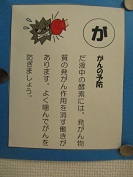 が
がんの予防
だ液中の酵素には、発がん物
質の発がん作用を消す働きが
あります。よく噛んでがんを
防ぎましょう。